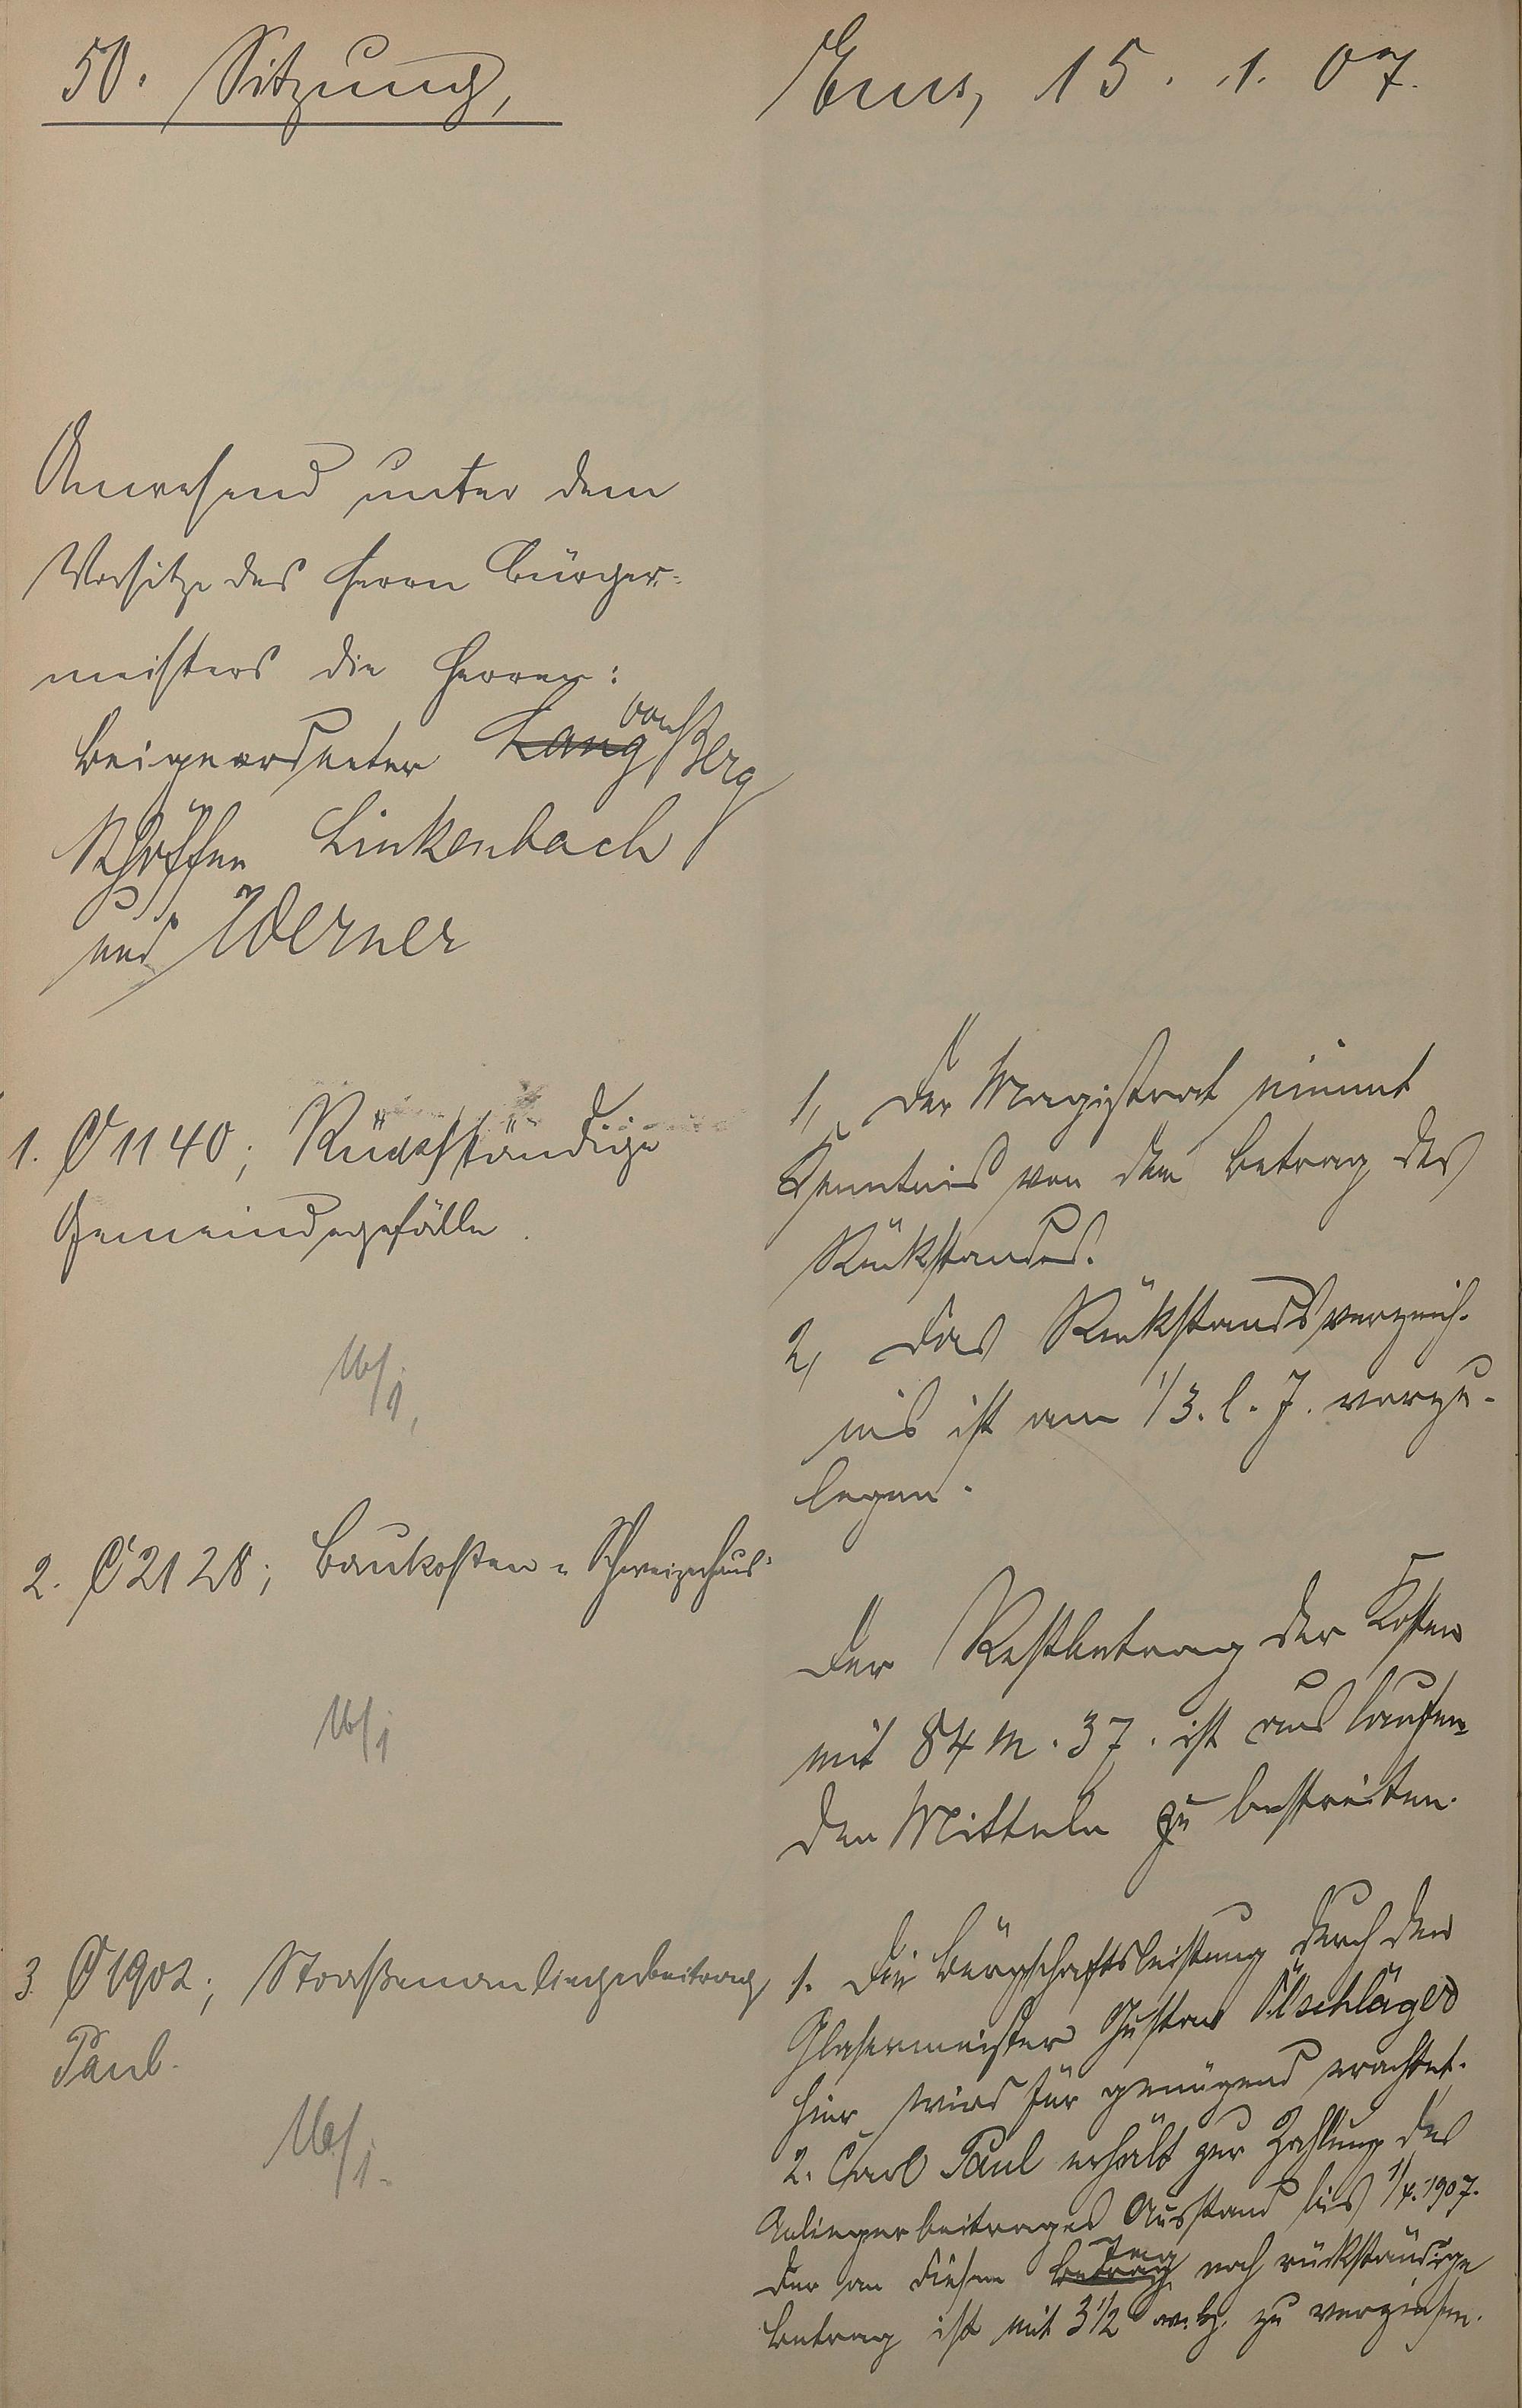 50. Sitzung,
Ems, 15. 1. 07.
Anwesend unter dem
Vorsitze des Herrn Bürger-
meisters die Herren:
Beigeordneter Lang von Berg
Schöffen Linkenbach
und Werner
1. C 1140; Rückständige
Gemeindegefälle.
16/1.
1, Der Magistrat nimmt
Kenntnis von dem Betrag des
Rückstandes.
2, Das Rückstandsverzeich-
nis ist am 1/3. l. J. vorzu-
legen.
2. C 2128; Baukosten "Schweizerhaus"
16/1
Der Restbetrag der Kosten
mit 84 M. 37. ist aus laufen-
den Mitteln zu bestreiten.
3. C 1902; Straßenanliegerbeitrag
Paul.
16/1.
1. Die Bürgschaftsleistung durch den
Glasermeister Gustav Ölschläger
hier wird für genügend erachtet.
2. Carl Paul erhält zur Zahlung des
Anliegerbeitrages Ausstand bis 1/4. 1907.
Der an diesem Betrag Tag noch rückständige
Betrag ist mit 3 1/2 v. H. zu verzinsen.